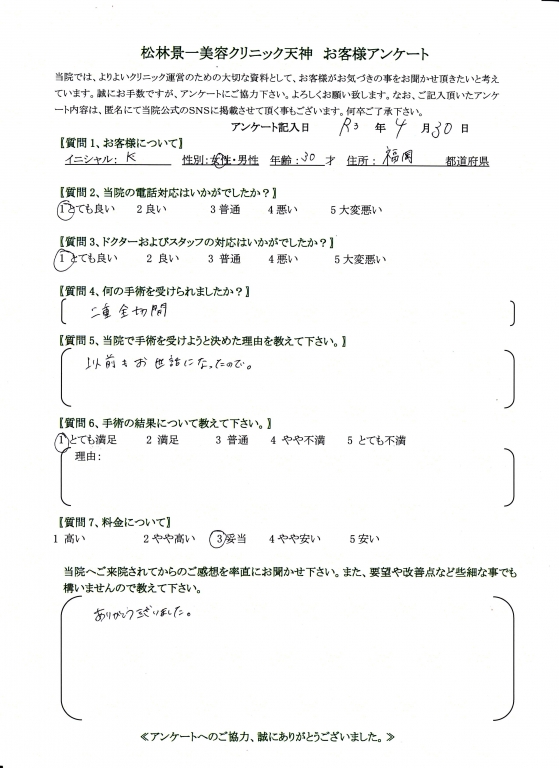 松林景一美容クリニック天神　お客様アンケート
当院では、よりよいクリニック運営のための大切な資料として、お客様がお気づきの事をお聞かせ頂きたいと考え
ています。誠にお手数ですが、アンケートにご協力下さい。よろしくお願い致します。なお、ご記入頂いたアンケ
ート内容は、匿名にて当院公式のSNSに掲載させて頂く事もございます。何卒ご了承下さい。
アンケート記入日　R3 年 4 月 30 日
【質問1、お客様について】
イニシャル： K　性別：女性・男性　年齢：30 才　住所：福岡　都道府県
【質問2、当院の電話対応はいかがでしたか？】
1 とても良い　2 良い　3 普通　4 悪い　5 大変悪い
【質問3、ドクターおよびスタッフの対応はいかがでしたか？】
1 とても良い　2 良い　3 普通　4 悪い　5 大変悪い
【質問4、何の手術を受けられましたか？】
二重全切開
【質問5、当院で手術を受けようと決めた理由を教えて下さい。】
以前もお世話になったので。
【質問6、手術の結果について教えて下さい。】
1 とても満足　2 満足　3 普通　4 やや不満　5 とても不満
理由：
【質問7、料金について】
1 高い　2 やや高い　3 妥当　4 やや安い　5 安い
当院へご来院されてからのご感想を率直にお聞かせ下さい。また、要望や改善点など些細な事でも
構いませんので教えて下さい。
ありがとうございました。
≪アンケートへのご協力、誠にありがとうございました。≫